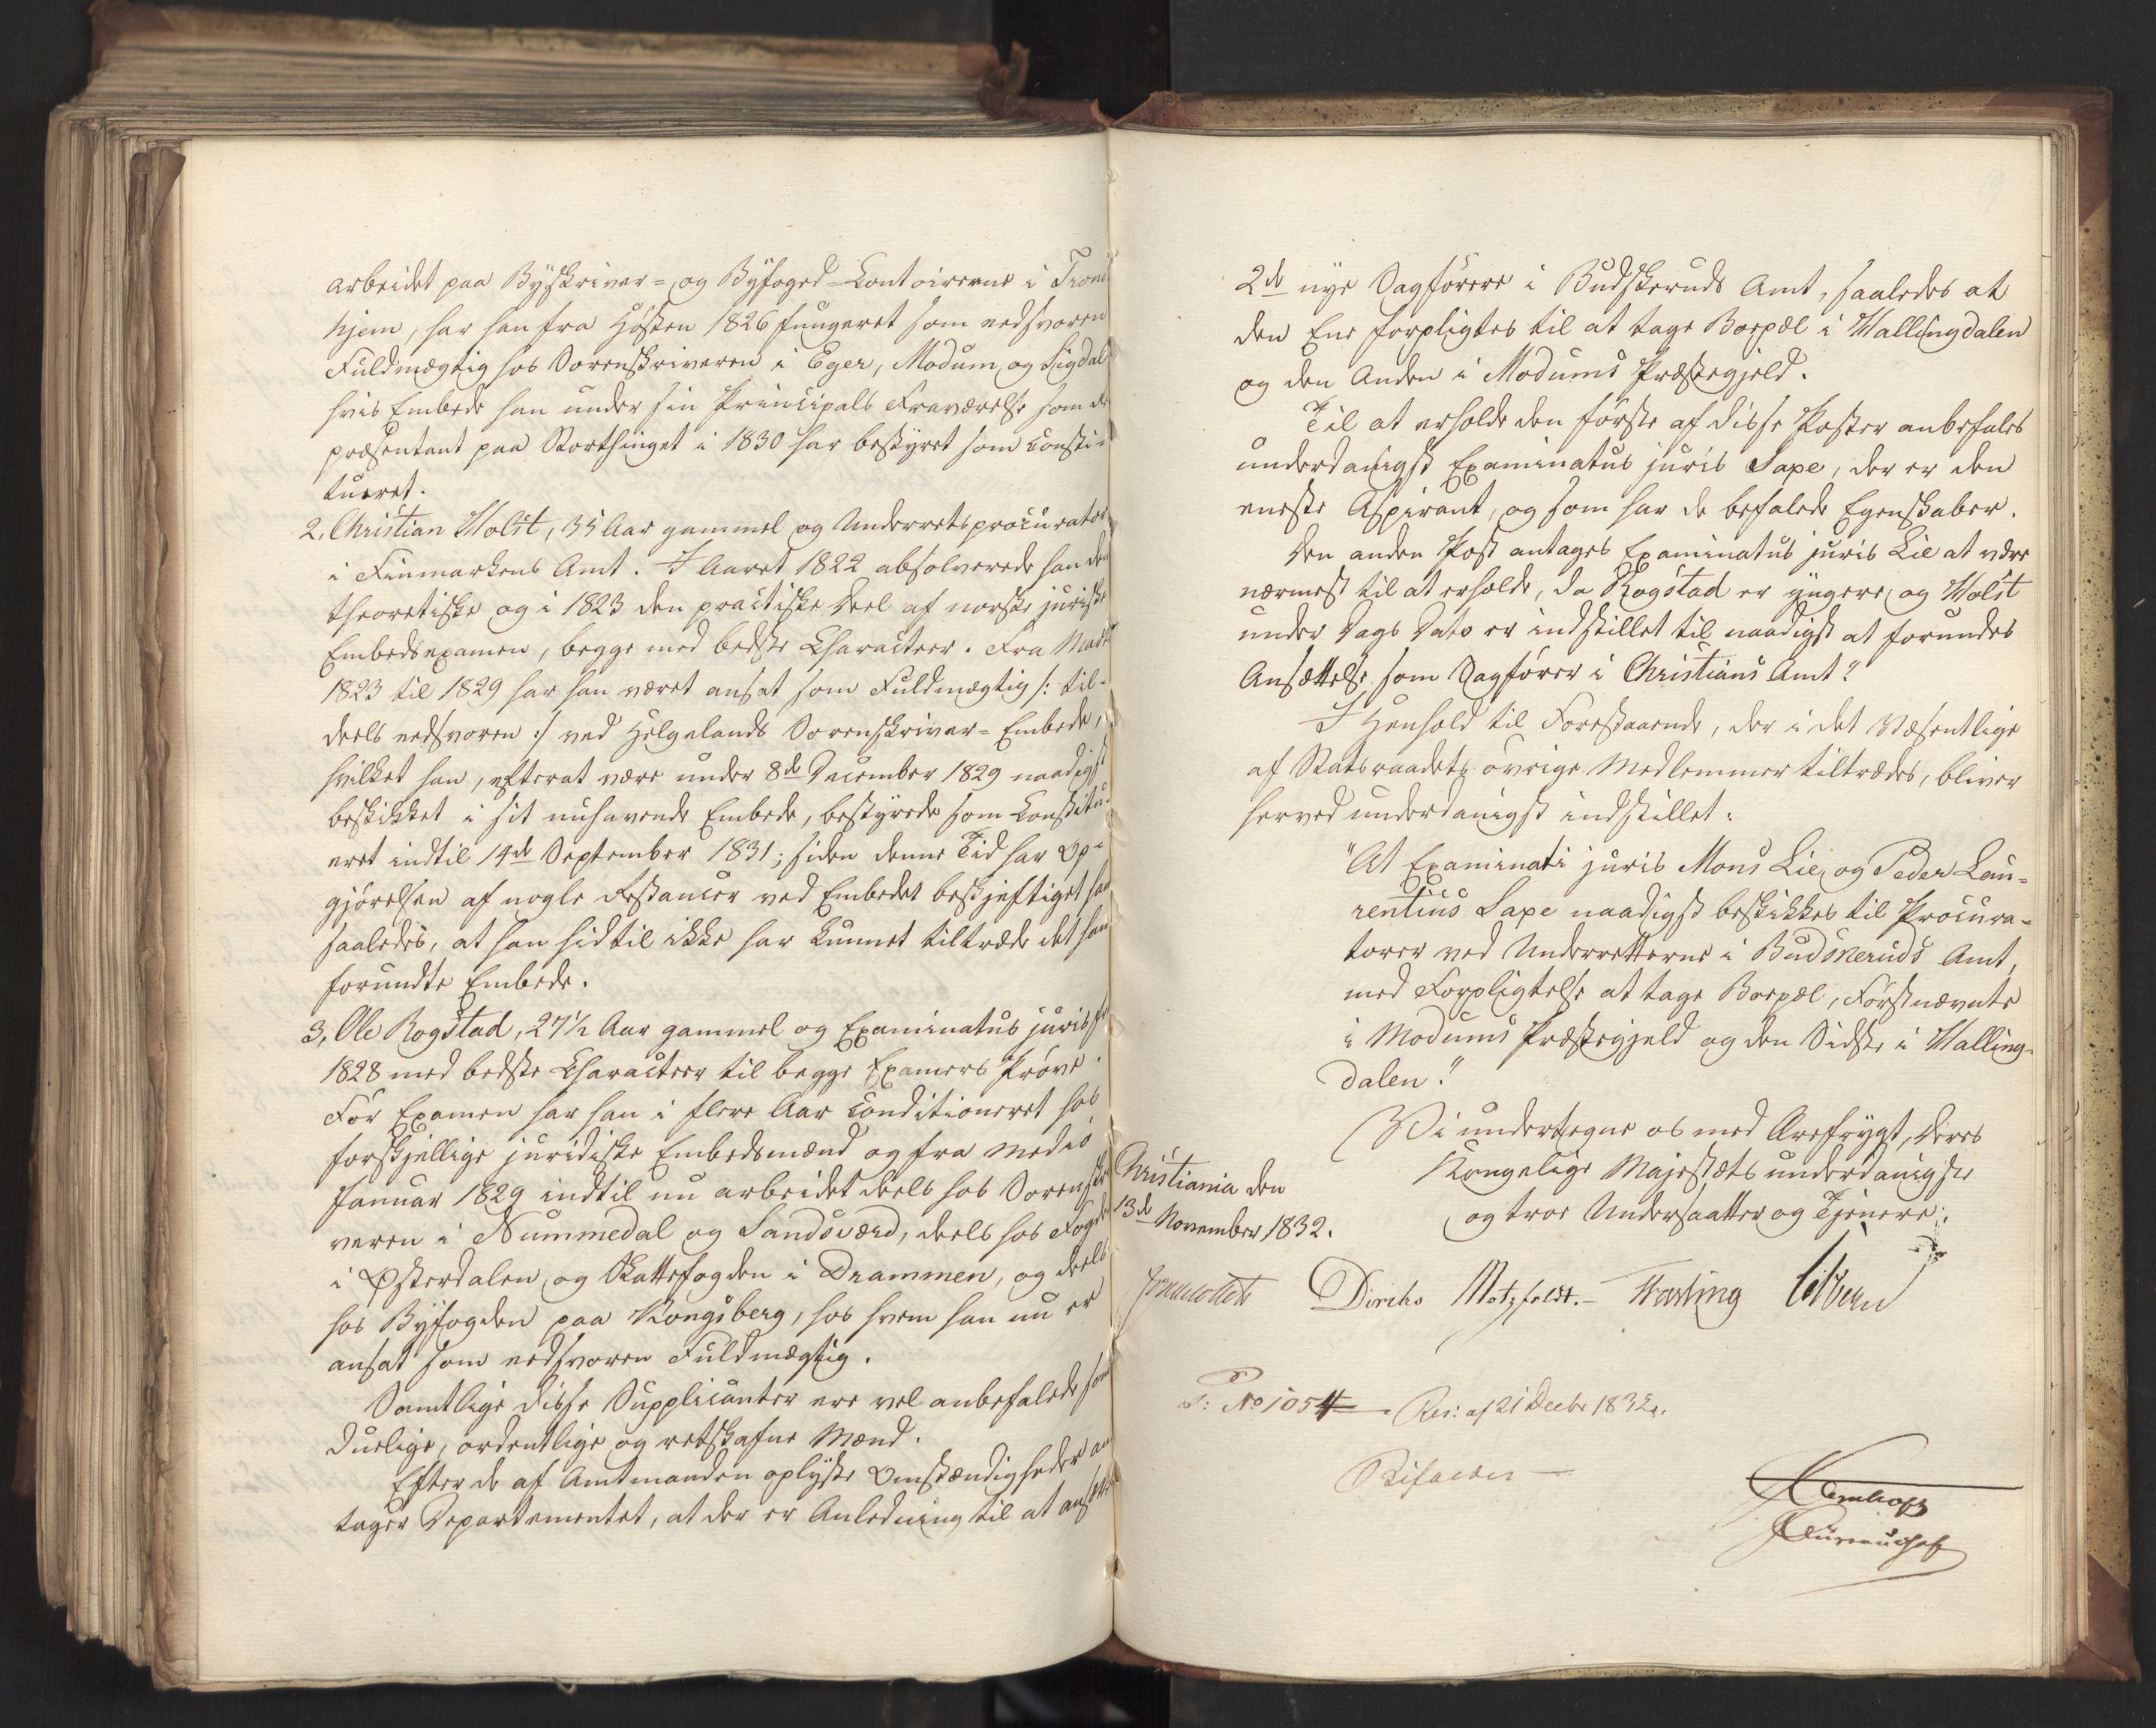 arbeidet paa Byskriver- og Byfoged-Contoirerne i Trond
hjem, har han fra Høsten 1826 fungeret som eedsvoren
Fuldmægtig hos Sorenskriveren i Eger, Modum og Sigdal
hvis Embede han under sin Principals Fraværelse som Re
præsentant paa Storthinget i 1830 har bestyret som consti-
tueret.
2, Christian Holst, 35 Aar gammel og Underretsprocurator
i Finmarkens Amt. I Aaret 1822 absolverede han den
theoretiske og i 1823 den practiske Deel af norsk juridisk
Embedsexamen, begge med bedste Characteer. Fra Marts
1823 til 1829 har han været ansat som Fuldmægtig /: til-
deels eedsvoren :/ ved Helgelands Sorenskriver-Embede,
hvilket han, efterat være under 8de December 1829 naadigst
beskikket i sit nuhavende Embede, bestyrede som Constitu-
eret indtil 14de September 1831; siden denne Tid har Op-
gjørelsen af nogle Restancer ved Embedet beskjeftiget ham
saaledes, at han hidtil ikke har kunnet tiltræde det ham
forundte Embede.
3, Ole Rogstad, 27½ Aar gammel og Examinatus juris fra
1828 med bedste Characteer til begge Examens Prøver.
Før Examen har han i flere Aar conditioneret hos
forskjellige juridiske Embedsmænd og fra Medio
Januar 1829 indtil nu arbeidet deels hos Sorenskri
veren i Nummedal og Sandsværd, deels hos Fogden
i Østerdalen og Skattefogden i Drammen, og deels
hos Byfogden paa Kongsberg, hos hvem han nu er
ansat som eedsvoren Fuldmægtig.
Samtlige disse Supplicanter ere vel anbefalede som
duelige, ordentlige og retskafne Mænd.
Efter de af Amtmanden oplyste Omstændigheder an
tager Departementet, at der er Anledning til at ansætte
2de nye Sagførere i Budskeruds Amt, saaledes at
den Ene forpligtes til at tage Boepæl i Hallingdalen
og den Anden i Modums Præstegjeld.
Til at erholde den første af disse Poster anbefales
underdanigst Examinatus juris Lape, der er den
eneste Aspirant, og som har de befalede Egenskaber.
Den anden Post antages Examinatus juris Lie at være
nærmest til at erholde, da Rogstad er yngere, og Holst
under Dags Dato er indstillet til naadigst at forundes
Ansættelse som Sagfører i Christians Amt."
I Henhold til Forestaaende, der i det Væsentlige
af Statsraadets øvrige Medlemmer tiltrædes, bliver
herved underdanigst indstillet:
"At Examinati juris Mons Lie, og Peder Lau-
rentius Lape naadigst beskikkes til Procura-
torer ved Underretterne i Budskeruds Amt,
med Forpligtelse at tage Boepæl, Førstnævnte
i Modums Præstegjeld og den Sidste i Halling-
dalen."
Vi undertegne os med Ærefrygt, Deres
Kongelige Majestæts underdanigste
og troe Undersaatter og Tjenere.
Christiania den
13de November 1832.
Diriks Motzfeldt. Vogt
No 1054 Res: af 21 Decbr 1832.
Bifaldes